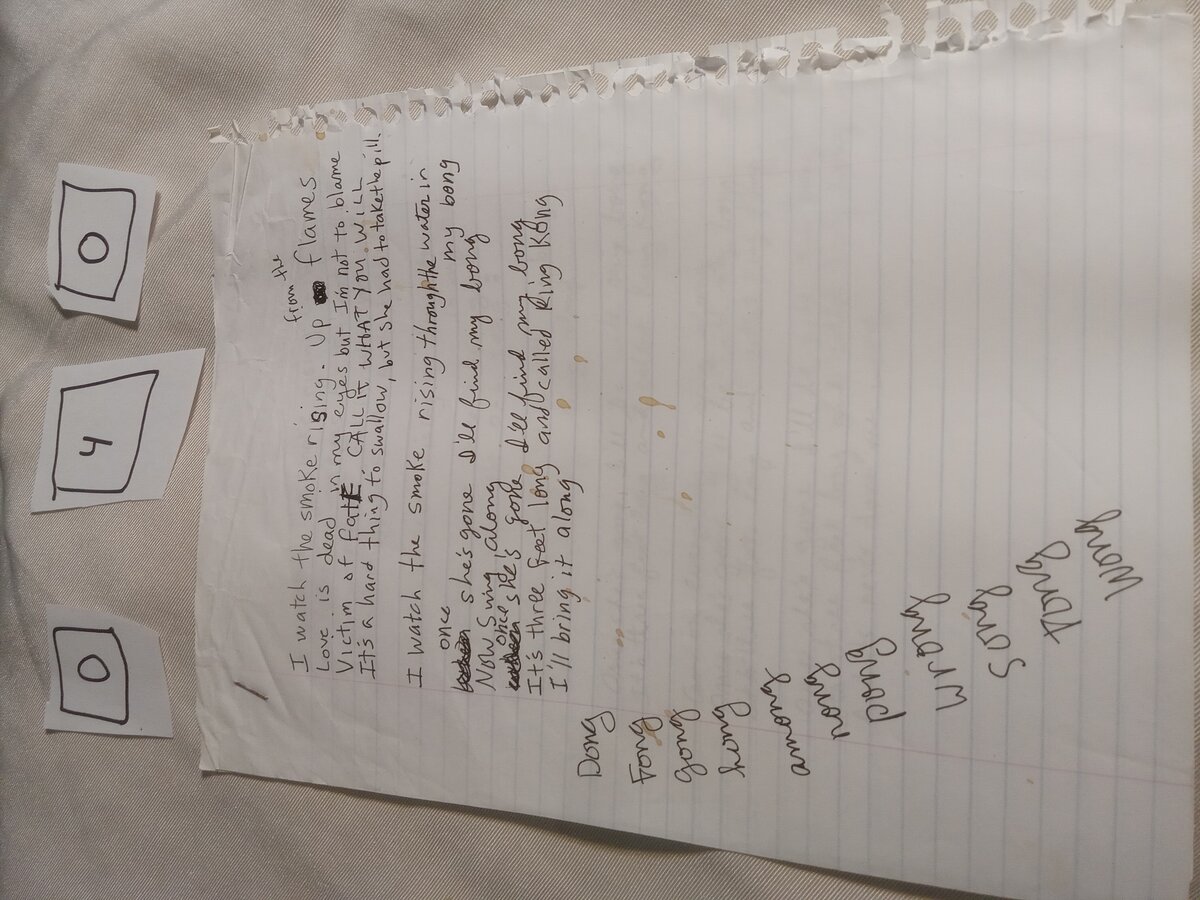 0 4 0
I watch the smoke rising. Up from the flames
Love is dead in my eyes but I'm not to blame
Victim of fate CALL it WHAT YOU WILL
It's a hard thing to swallow, but she had to take the pill.
I watch the smoke rising through the water in
my bong
once she's gone I'll find my bong
Now Sing along
once she's gone I'll find my bong
It's three feet long and called King Kong
I'll bring it along
Dong
Fong
gong
hong
among
nong
pong
wrong
song
tong
wong